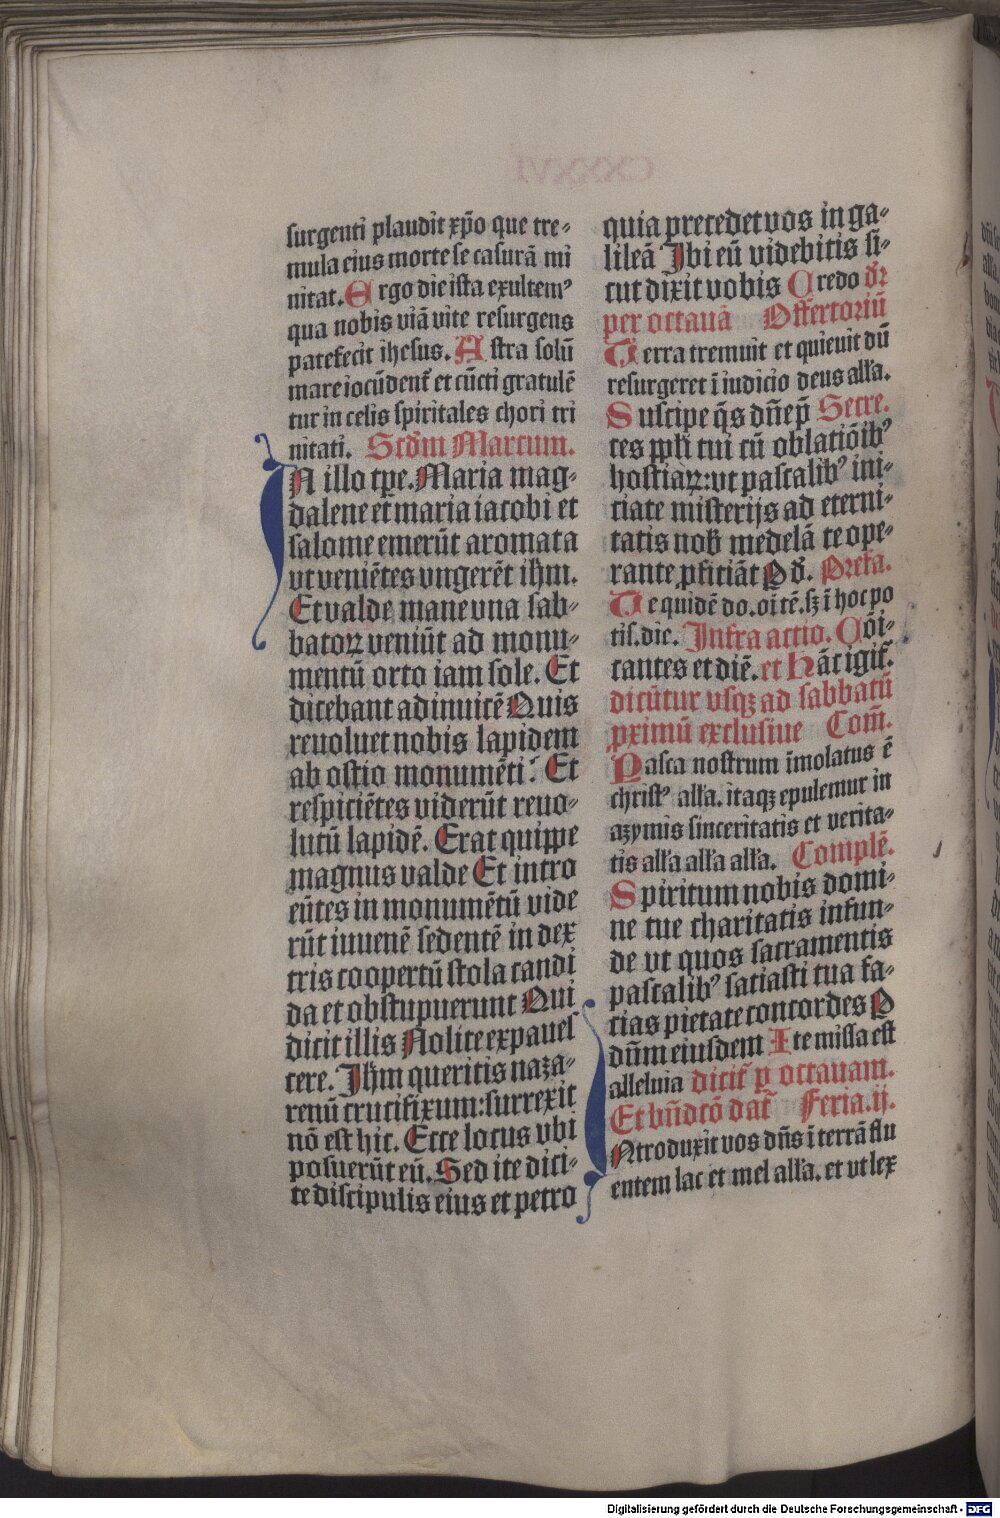 surgenti plaudit xp̄o que tre-
mula eius morte se casurā mi
nitat. Ergo die ista exultemꝰ
qua nobis viā vite resurgens
patefecit ihesus. Astra solū
mare iocūdent᷑ et cūcti gratulē
tur in celis spiritales chori tri
nitati. Scd̄m Marcum.
IN illo tp̄e. Maria mag-
dalene et maria iacobi et
salome emerūt aromata
vt veniētes vngerēt ih̄m.
Et valde mane vna sab-
batoꝝ veniūt ad monu-
mentū orto iam sole. Et
dicebant adinuicē Quis
reuoluet nobis lapidem
ab ostio monumēti? Et
respiciētes viderūt reuo-
lutū lapidē. Erat quippe
magnus valde Et intro
eūtes in monumētū vide
rūt iuuenē sedentē in dex
tris coopertū stola candi
da et obstupuerunt Qui
dicit illis Nolite expaues
cere. Ih̄m queritis naza-
renū crucifixum: surrexit
nō est hic. Ecce locus vbi
posuerūt eū. Sed ite dici-
te discipulis eius et petro
quia precedet vos in ga-
lileā Ibi eū videbitis si-
cut dixit vobis Credo dr̄
per octauā Offertoriū
Terra tremuit et quieuit dū
resurgeret ī iudicio deus all'a.
Suscipe q̄s dn̄e p̄ Secre.
ces pp̄li tui cū oblatiōibꝰ
hostiaꝝ: vt pascalibꝰ ini-
ciate misterijs ad eterni-
tatis nob̄ medelā te ope-
rante ꝓficiāt Pd̄. Prefa.
Te quidē do. oī tē. sꝫ ī hoc po
tis. die. Infra actio. Cōi-
cantes et diē. et Hāc igit᷑.
dicūtur vsqꝫ ad sabbatū
ꝓximū exclusiue Com̄.
Pasca nostrum īmolatus ē
christꝰ all'a. itaqꝫ epulemur in
azymis sinceritatis et verita-
tis all'a all'a all'a. Complē.
Spiritum nobis domi-
ne tue charitatis infun-
de vt quos sacramentis
pascalibꝰ satiasti tua fa-
cias pietate concordes P
dn̄m eiusdem Ite missa est
alleluia dicit᷑ ꝑ octauam.
Et bn̄dcō dat᷑ Feria. ij.
INtroduxit vos dn̄s ī terrā flu
entem lac et mel all'a. et vt lex
Digitalisierung gefördert durch die Deutsche Forschungsgemeinschaft - DFG